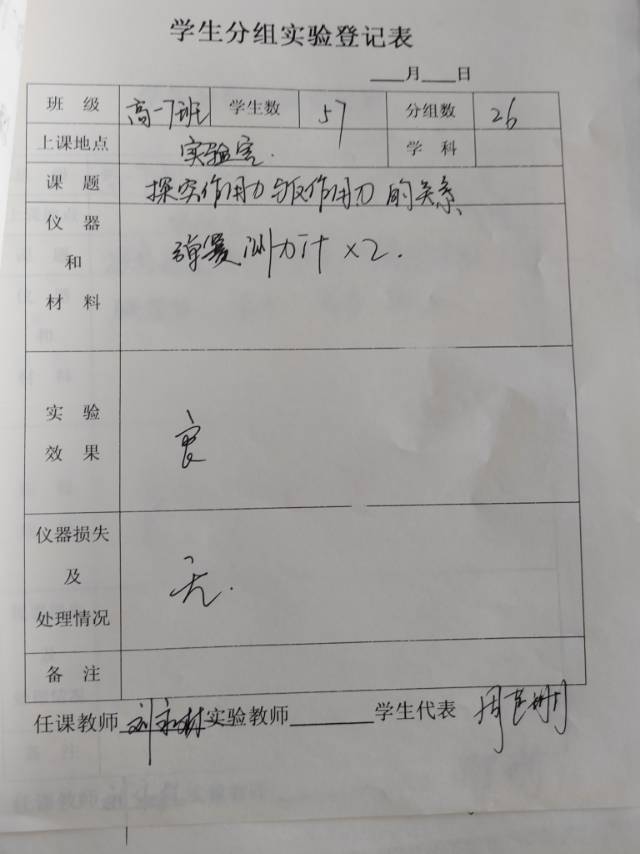 学生分组实验登记表
___月___日
班级 高一7班 学生数 57 分组数 26
上课地点 实验室. 学科
课题 探究作用力与反作用力的关系
仪器和材料 弹簧测力计×2.
实验效果 良
仪器损失及处理情况 无.
备注
任课教师 刘 实验教师______ 学生代表 周